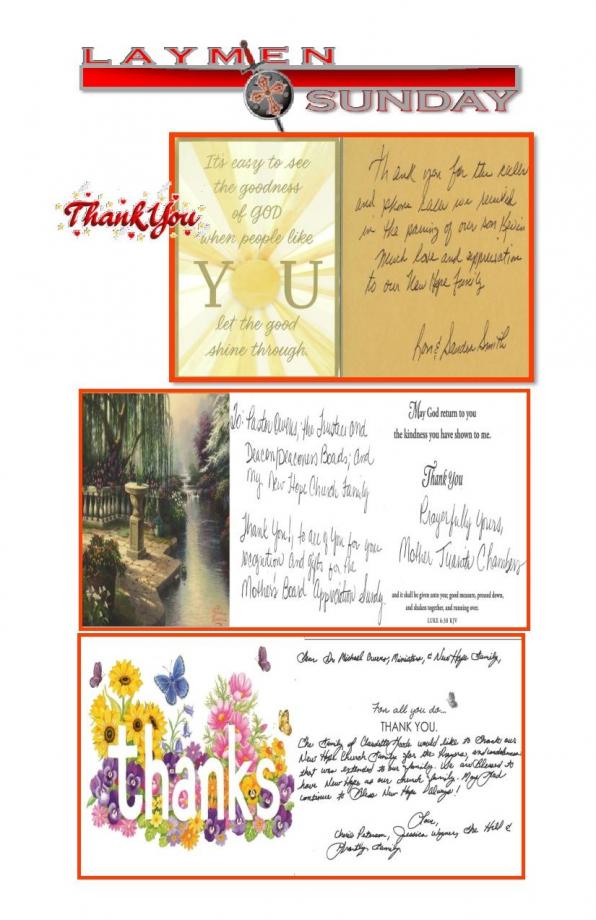 LAYMEN
SUNDAY
Thank You
It's easy to see
the goodness
of GOD
when people like
YOU
let the good
shine through.
Thank you for the calls
and phone calls we received
in the passing of our son Kevin
Much love and appreciation
to our New Hope Family
Ron & Sandra Smith
To: Pastor Owens, the Trustee and
Deacon/Deaconess Boards; and
My New Hope Church Family
Thank You! to all of you for your
recognition and gifts for the
Mother's Board Appreciation Sunday.
May God return to you
the kindness you have shown to me.
Thank You
Prayerfully Yours,
Mother Juanita Chambers
and it shall be given unto you; good measure, pressed down,
and shaken together, and running over.
LUKE 6:38 KJV
thanks
Dear Dr. Michael Owens, Ministers, & New Hope Family,
For all you do...
THANK YOU.
The Family of would like to thank our
New Hope Church Family for the Prayers, and condolences
that was extended to our family. We are Blessed to
have New Hope as our church family. May God
continue to Bless New Hope Always!
Love,
Chris Paterson, Jessica Wagner, the Hill &
Family